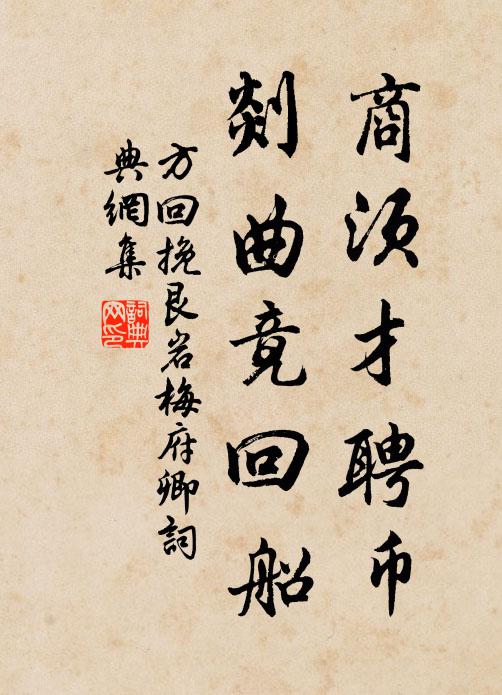 商须才聘币
剡曲竟回船
方回挽艮岩梅府卿詞
典網集
詞典网印